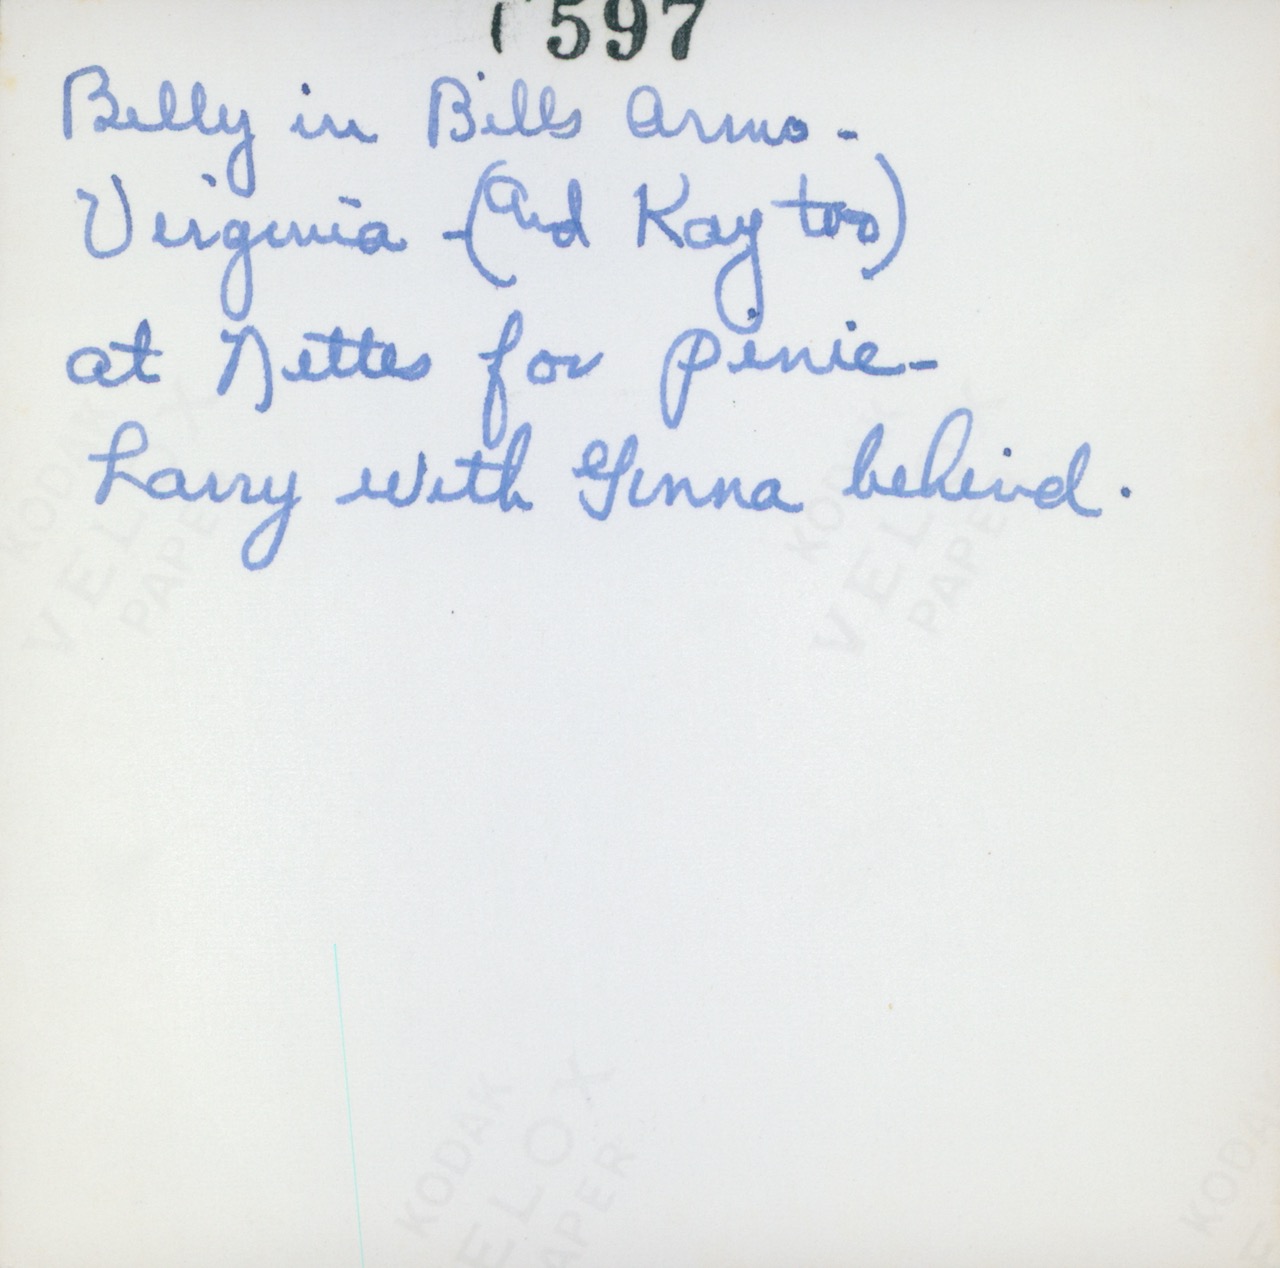 597
Billy in Bills arms -
Virginia - (and Kay too)
at Nettes for picnic -
Larry with Ginna behind.
KODAK
VELOX
PAPER
KODAK
VELOX
PAPER
KODAK
VELOX
PAPER
KODAK